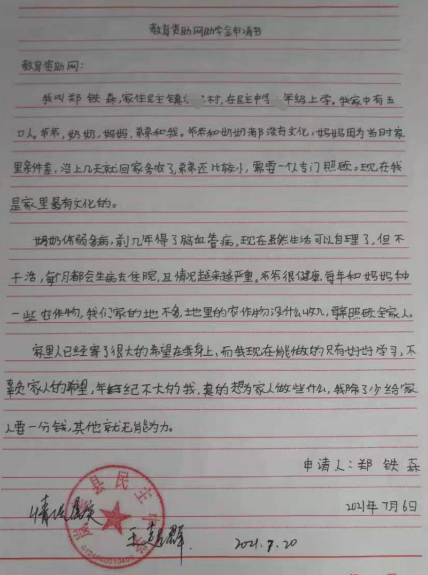 教育资助网助学金申请书
教育资助网：
我叫郑铁森，家住民主镇村，在民主中年级上学。我家中有五
口人。爷爷，奶奶，妈妈，弟弟和我。爷爷和奶奶都没有文化，妈妈因为当时家
里条件差，没上几天就回家务农了，弟弟还比较小，需要一个专门照顾。现在我
是家里最有文化的。
奶奶体弱多病，前几年得了脑血管病，现在虽然生活可以自理了，但不
干活，每个月都会生病去住院，且情况越来越严重。爷爷很健康，每年和妈妈种
一些农作物，我们家的地不多，地里的农作物没什么收入，要照顾全家人。
家里人已经寄了很大的希望在我身上，而我现在能做的只有好好学习，不
辜负家人的希望，年纪不大的我，真的想为家人做些什么，我除了少给家
人要一分钱，其他就无能为力。
申请人：郑铁森
2021年7月6日
情况属实
县民主
2021.7.20